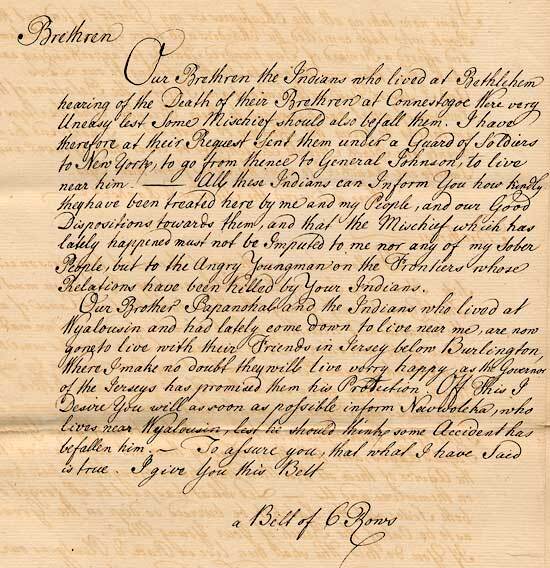 Brethren
Our Brethren the Indians who lived at Bethlehem
hearing of the Death of their Brethren at Connestogoe were very
Uneasy lest Some Mischief should also befall them. I have
therefore at their Request Sent them under a Guard of Soldiers
to New York, to go from thence to General Johnson, to live
near him. — All these Indians can Inform You how kindly
they have been treated here by me and my People, and our Good
Dispositions towards them, and that the Mischief which has
lately happened must not be Imputed to me nor any of my Sober
People, but to the Angry Youngman on the Frontiers whose
Relations have been killed by Your Indians.
Our Brother Papanohal and the Indians who lived at
Wyalousin and had lately come down to live near me, are now
gone to live with their Friends in Jersey below Burlington,
Where I make no doubt they will live verry happy, as the Governor
of the Jerseys has promised them his Protection. Off This I
Desire You will as soon as possible inform who
lives near Wyalousin, lest he should think some Accident has
befallen him. — To assure you, that what I have Said
is true. I give You this Belt
a Belt of 6 Rows